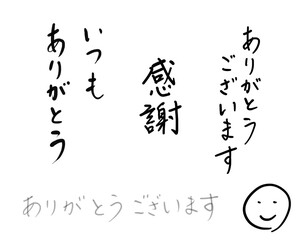 ありがとう
ございます
感謝
いつも
ありがとう
ありがとうございます